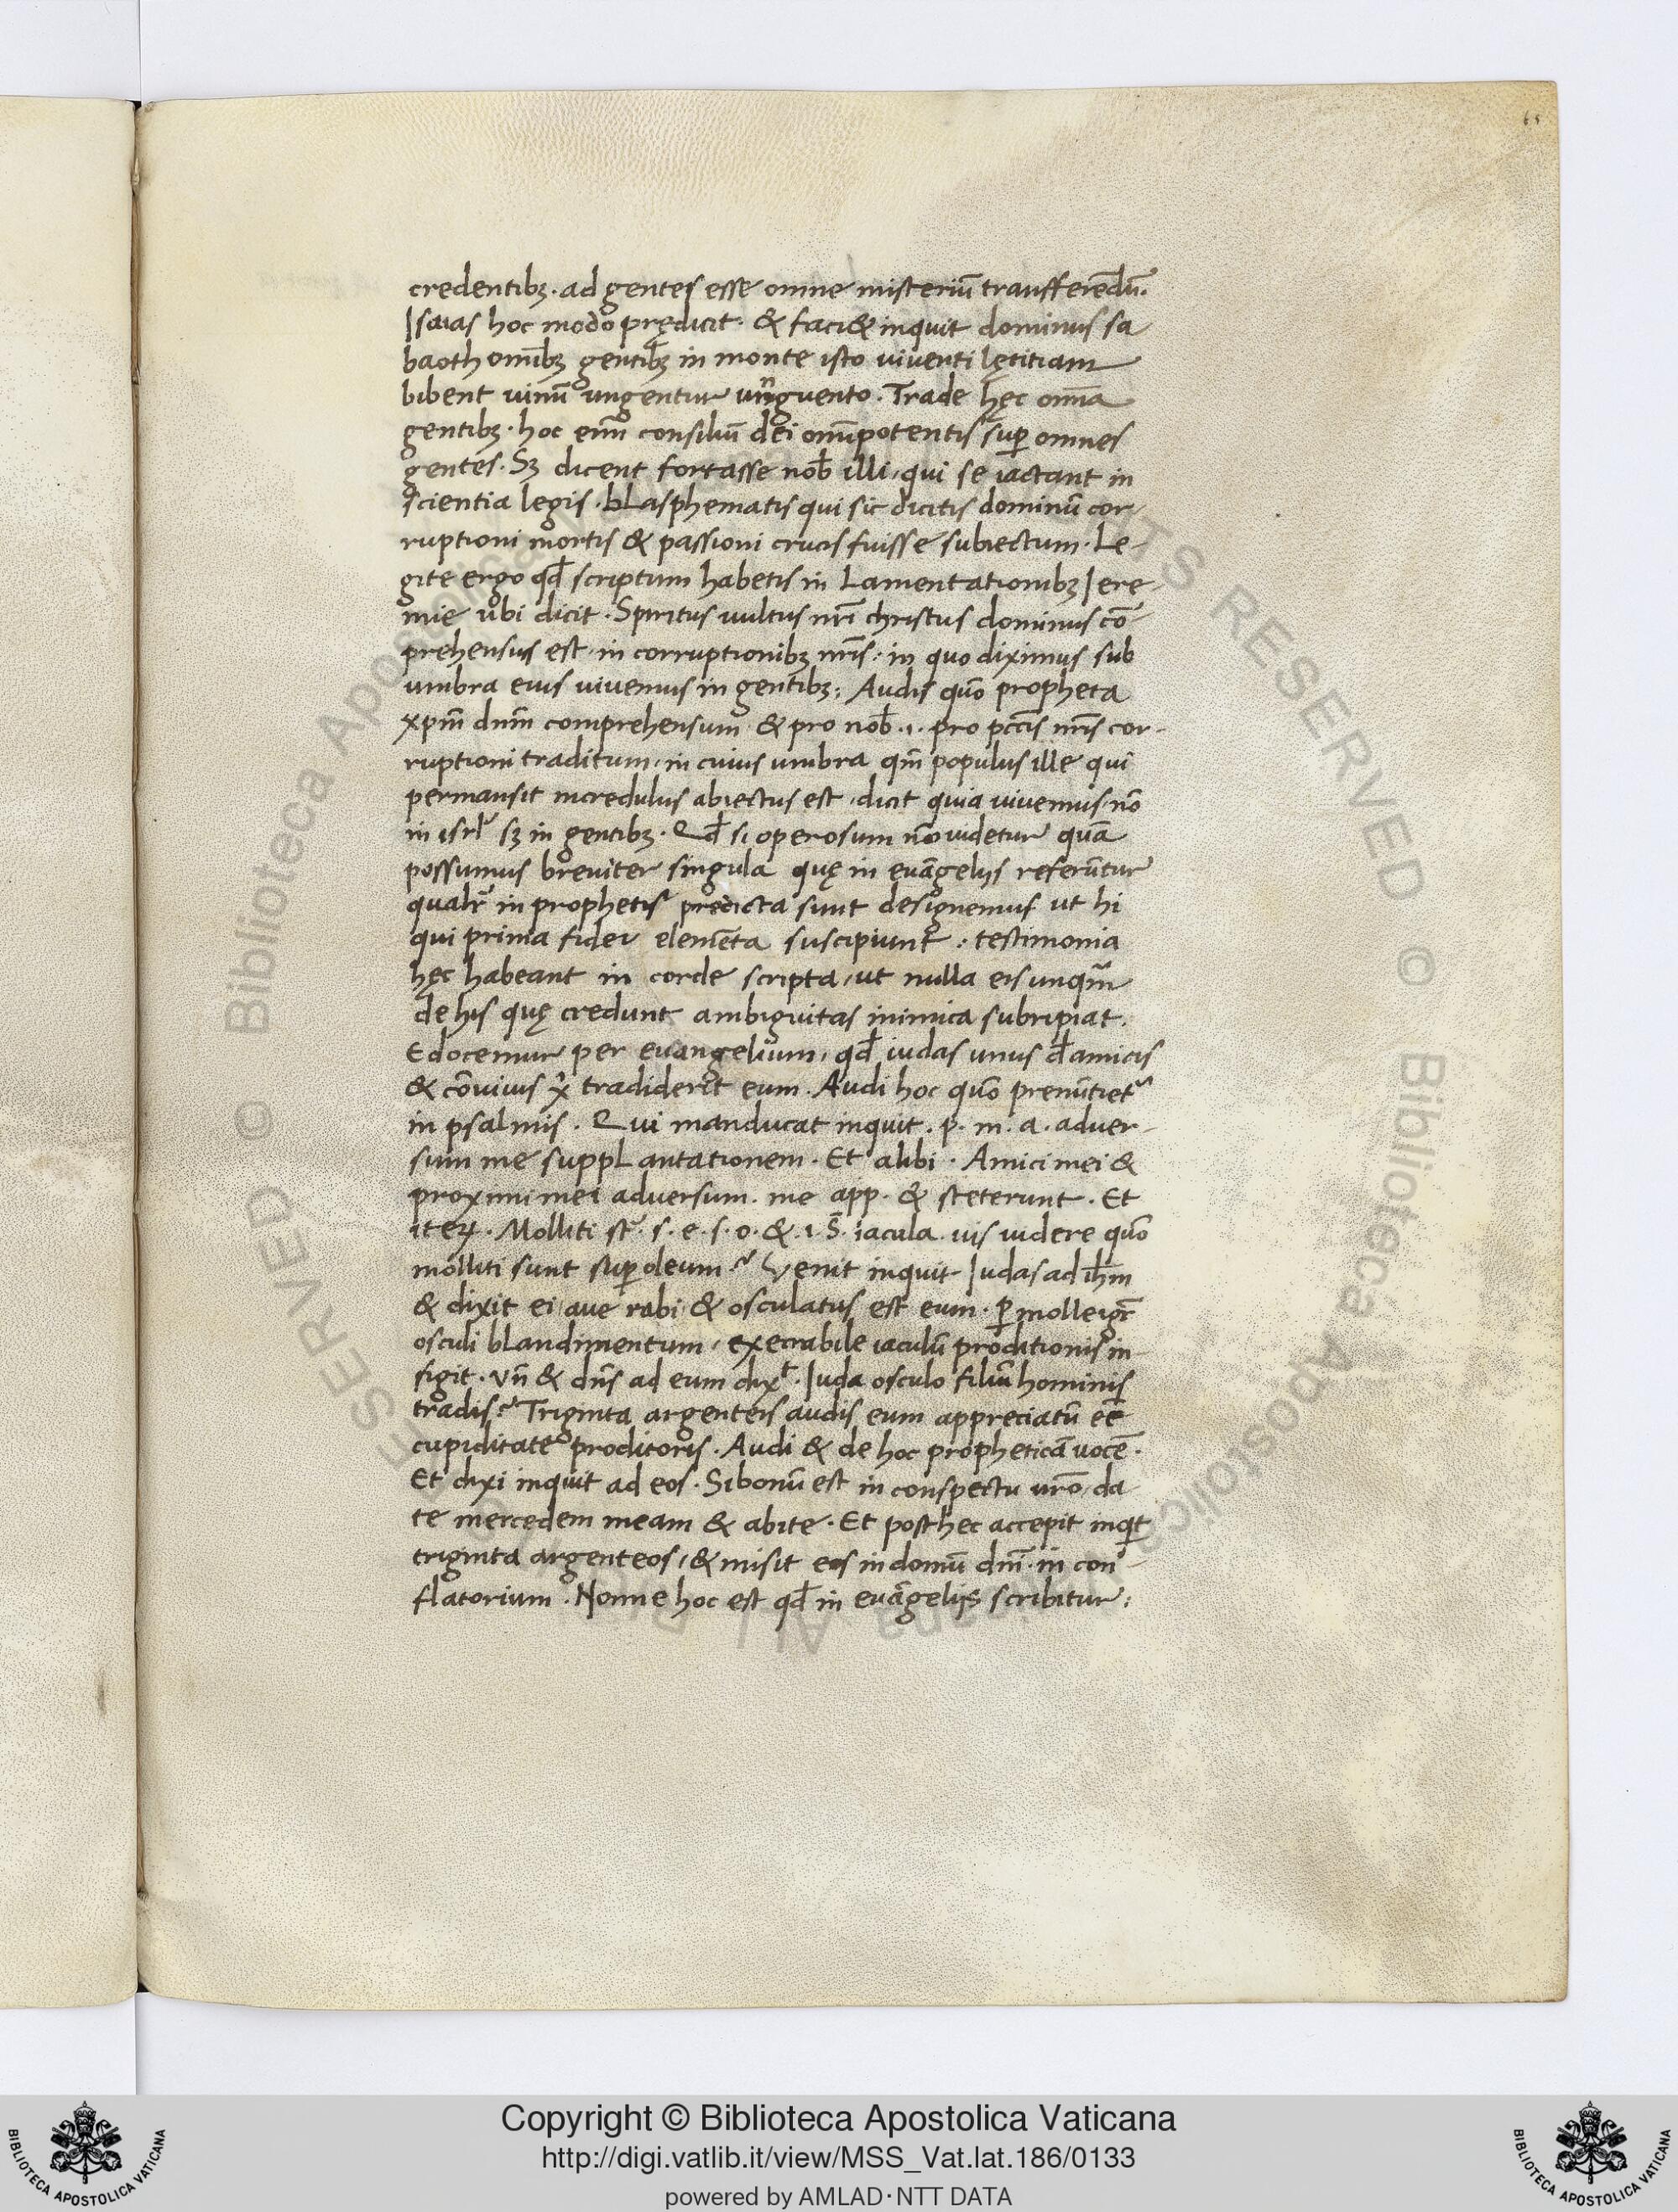 65
credentibꝫ. ad gentes esse omne misteriū transferēdū.
Isaias hoc modo prędicit. & faci& inquit dominus sa
baoth omībꝫ gentibꝫ in monte isto viventi lętitiam
bibent uinū ungentur unguento. Trade hęc om̄a
gentibꝫ. hoc enī consiliū dei omīpotentis suꝑ omnes
gentes. Sꝫ dicent fortasse nob̄ illi, qui se iactant in
scientia legis. blasphematis qui sic dicitis dominū cor-
ruptioni mortis & passioni crucis fuisse subiectum. Le-
gite ergo qđ scriptum habetis in Lamentationibꝫ Iere-
mie ubi dicit. Spiritus uultus nr̄i christus dominus cō-
prehensus est, in corruptionibꝫ nr̄is: in quo diximus sub
umbra eius uivemus in gentibꝫ; Audis quō propheta
xpm̄ dnm̄ comprehensum & pro nob̄ .i. pro pcc̄is nr̄is cor-
ruptioni traditum, in cuius umbra qm̄ populus ille qui
permansit incredulus abiectus est, dicit quia vivemus, nō
in isrl̄ sꝫ in gentibꝫ. Qđ si operosum nō videtur quā
possumus breviter singula quę in evāgelijs referūtur
qualr̄ in prophetis predicta sunt designemus ut hi
qui prima fidei elemēta suscipiunt: testimonia
hęc habeant in corde scripta, ut nulla eis unqm̄
de his quę credunt ambiguitas inimica subripiat.
Edocemur per evangelium, qđ iudas unus đ amicis
& cōvivis x̄ tradiderit eum. Audi hoc quō prenūtiet᷑
in psalmis. Qui manducat inquit. p. m. a. adver-
sum me supplantationem. Et alibi. Amici mei &
proximi mei adversum. me app. & steterunt. Et
iteꝝ. Molliti st̄. s. e. s. o. & .i. S̄. iacula. vis videre quō
molliti sunt suꝑ oleum? Venit inquit Iudas ad ih̄m
& dixit ei, ave rabi, & osculatus est eum. ꝑ molle igr̄
osculi blandimentum, execrabile iaculū proditionis in-
figit. Vn̄ & dn̄s ad eum dixt̄. Iuda osculo filiū hominis
tradis? Triginta argenteis audis eum appreciatū eē
cupiditate proditoris. Audi & de hoc propheticā vocē.
Et dixi inquit ad eos. Si bonū est in conspectu vr̄o, da
te mercedem meam & abite. Et post hec accepit inqt
triginta argenteos, & misit eos in domū dnī. in con-
flatorium. Nonne hoc est qđ in evāgelijs scribitur;
Copyright © Biblioteca Apostolica Vaticana
http://digi.vatlib.it/view/MSS_Vat.lat.186/0133
powered by AMLAD·NTT DATA
BIBLIOTECA APOSTOLICA VATICANA
BIBLIOTECA APOSTOLICA VATICANA